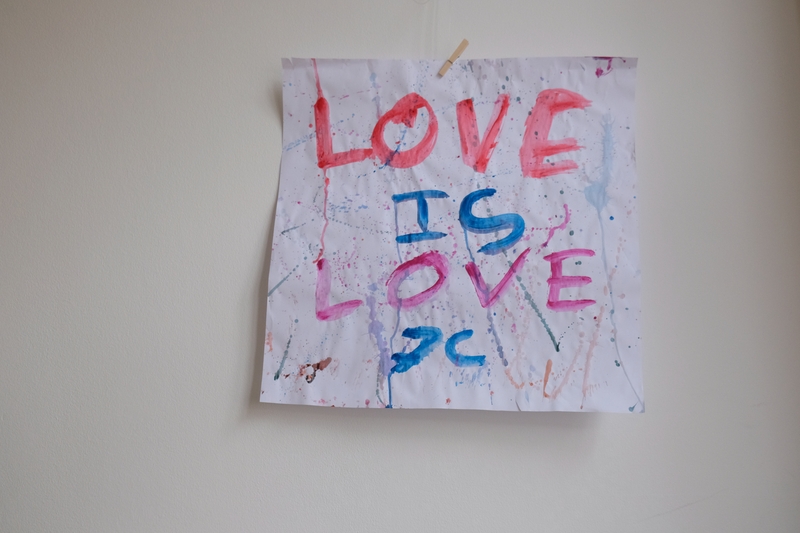 LOVE
IS
LOVE